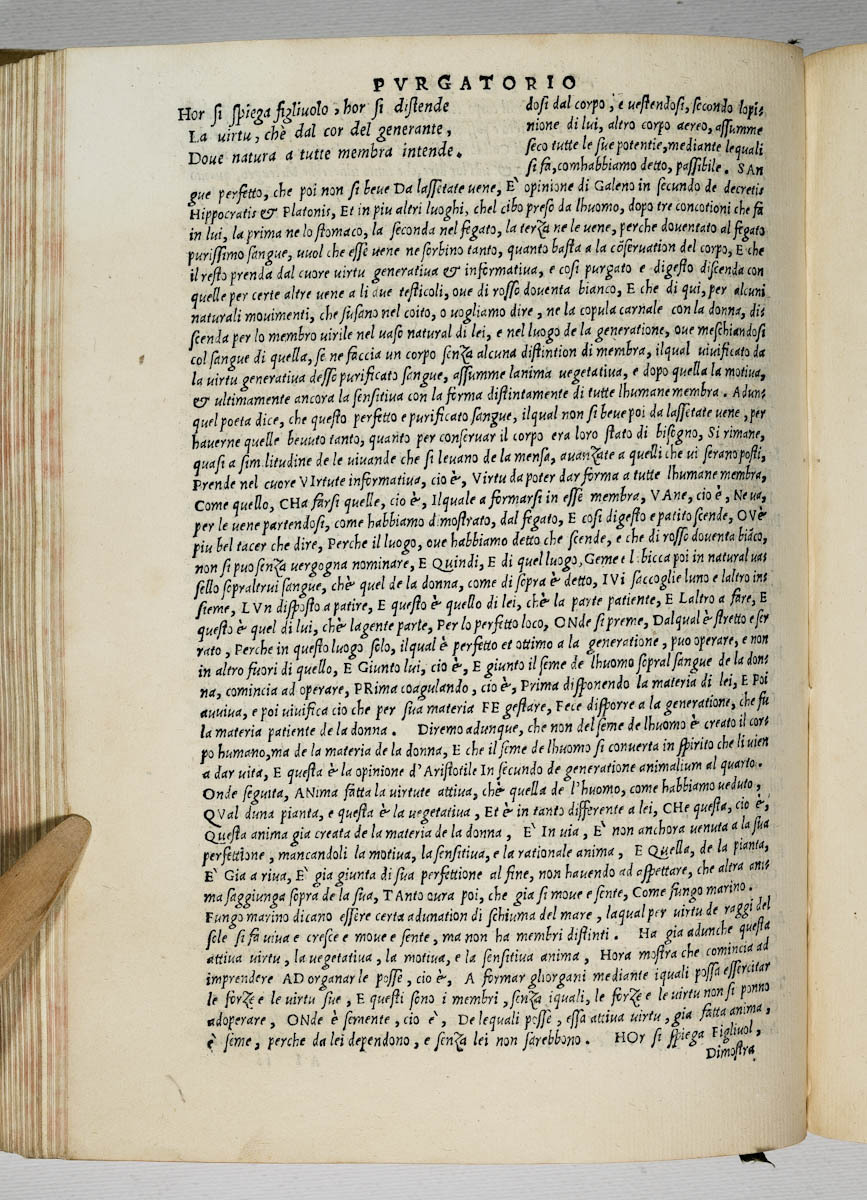 PVRGATORIO
Hor si spiega figliuolo, hor si distende
La uirtu, chè dal cor del generante,
Doue natura a tutte membra intende.
dosi dal corpo, e uestendosi, secondo lopi=
nione di lui, altro corpo aereo, assumme
seco tutte le sue potentie, mediante lequali
si fa, comhabbiamo detto, passibile. SAn
gue perfetto, che poi non si beue Da lassetate uene, E` opinione di Galeno in secundo de decretis
Hippocratis & Platonis, Et in piu altri luoghi, chel cibo preso da lhuomo, dopo tre concotioni che fa
in lui, la prima ne lo stomaco, la seconda nel fegato, la terza ne le uene, perche douentato al fegato
purissimo sangue, uuol che esse uene ne sorbino tanto, quanto basta a la cõseruation del corpo, E che
il resto prenda dal cuore uirtu generatiua & informatiua, e cosi purgato e digesto discenda con
quelle per certe altre uene a li due testicoli, oue di rosso douenta bianco, E che di qui, per alcuni
naturali mouimenti, che susano nel coito, o uogliamo dire, ne la copula carnale con la donna, di=
scenda per lo membro uirile nel uaso natural di lei, e nel luogo de la generatione, oue meschiandosi
col sangue di quella, se ne faccia un corpo senza alcuna distintion di membra, ilqual uiuificato da
la uirtu generatiua desso purificato sangue, assumme lanima uegetatiua, e dopo quella la motiua,
& ultimamente ancora la sensitiua con la forma distintamente di tutte lhumane membra. Adun=
quel poeta dice, che questo perfetto e purificato sangue, ilqual non si beue poi da lassetate uene, per
hauerne quelle beuuto tanto, quanto per conseruar il corpo era loro stato di bisogno, Si rimane,
quasi a similitudine de le uiuande che si leuano de la mensa, auanzate a quelli che ui serano posti,
Prende nel cuore VIrtute informatiua, cio è, Virtu da poter dar forma a tutte lhumane membra,
Come quello, CHa farsi quelle, cio è, Ilquale a formarsi in esse membra, VAne, cio è, Ne ua,
per le uene partendosi, come habbiamo dimostrato, dal fegato, E cosi digesto e patito scende, OVè
piu bel tacer che dire, Perche il luogo, oue habbiamo detto che scende, e che di rosso douenta biãco,
non si puo senza uergogna nominare, E Quindi, E di quel luogo, Geme e l bicca poi in natural uas
sello sopraltrui sangue, chè quel de la donna, come di sopra è detto, IVi saccoglie luno e laltro in=
sieme, LVn disposto a patire, E questo è quello di lei, chè la parte patiente, E Laltro a fare, E
questo è quel di lui, chè lagente parte, Per lo perfetto loco, ONde si preme, Dalqual è stretto e ser
rato, Perche in questo luogo solo, ilqual è perfetto et ottimo a la generatione, puo operare, e non
in altro fuori di quello, E Giunto lui, cio è, E giunto il seme de lhuomo sopral sangue de la don=
na, comincia ad operare, PRima coagulando, cio è, Prima disponendo la materia di lei, E Poi
auuiua, e poi uiuifica cio che per sua materia FE gestare, Fece disporre a la generatione, che fu
la materia patiente de la donna. Diremo adunque, che non del seme de lhuomo è creato il cor=
po humano, ma de la materia de la donna, E che il seme de lhuomo si conuerta in spirito che li uien
a dar uita, E questa è la opinione d'Aristotile In secundo de generatione animalium al quarto.
Onde seguita, ANima fatta la uirtute attiua, chè quella de l'huomo, come habbiamo ueduto,
QVal duna pianta, e questa è la uegetatiua, Et è in tanto differente a lei, CHe questa, cio è,
Questa anima gia creata de la materia de la donna, E` In uia, E` non anchora uenuta a la sua
perfettione, mancandoli la motiua, la sensitiua, e la rationale anima, E Quella, de la pianta,
E` Gia a riua, E` gia giunta di sua perfettione al fine, non hauendo ad aspettare, che altra ani=
ma saggiunga sopra de la sua, TAnto oura poi, che gia si moue e sente, Come fungo marino.
Fungo marino dicano essere certa adunation di schiuma del mare, laqual per uirtu de raggi del
sole si fa uiua e cresce e moue e sente, ma non ha membri distinti. Ha gia adunche questa
attiua uirtu, la uegetatiua, la motiua, e la sensitiua anima, Hora mostra che comincia ad
imprendere AD organar le posse, cio è, A formar gliorgani mediante iquali possa essercitar
le forze e le uirtu sue, E questi sono i membri, senza iquali, le forze e le uirtu non si ponno
adoperare, ONde è semente, cio è, De lequali posse, essa attiua uirtu, gia fatta anima,
è seme, perche da lei dependono, e senza lei non sarebbono. HOr si spiega Figliuol,
Dimostra